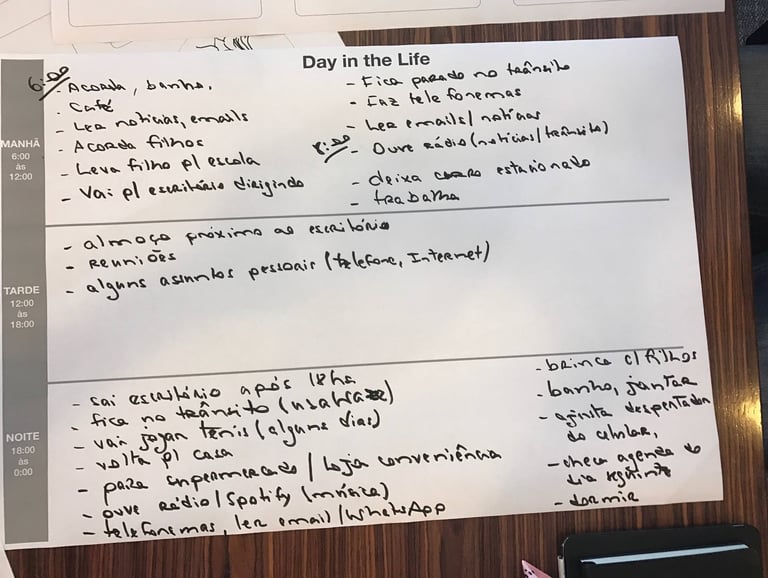 Day in the Life
MANHÃ
6:00
às
12:00
6:00
- Acorda, banho,
- Café
- Lea notícias, emails
- Acorda filhos
- Leva filho p/ escola
- Vai p/ escritório dirigindo
- Fica parado no trânsito
- Faz telefonemas
- Lea emails/notícias
8:00
- Ouve rádio (notícias/trânsito)
- deixa carro estacionado
- trabalha
TARDE
12:00
às
18:00
- almoço próximo ao escritório
- Reuniões
- alguns assuntos pessoais (telefone, Internet)
NOITE
18:00
às
0:00
- sai escritório após 18hs
- fica no trânsito (usa waze)
- vai jogar tenis (alguns dias)
- volta p/ casa
- para supermercado/loja conveniência
- ouve rádio/Spotify (música)
- telefonemas, ler email/WhatsApp
- brinca c/ filhos
- banho, jantar
- ajusta despertador
do celular,
- checa agenda do
dia seguinte
- dormir